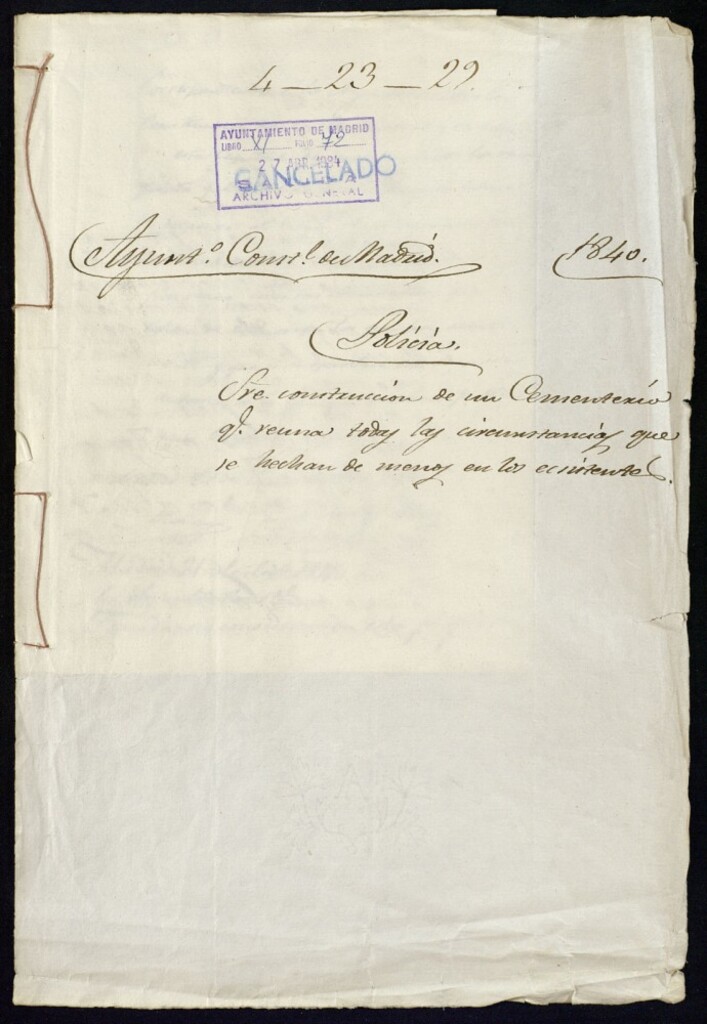 4 — 23 — 29.
AYUNTAMIENTO DE MADRID
LIBRO XI FOLIO 72
27 ABR. 1984
CANCELADO
SALIDA
ARCHIVO GENERAL
Ayunt.º Const.l de Madrid. 1840.
Policia.
Sre. construccion de un Cementerio
q.e reuna todas las circunstancias que
se hechan de menos en los ecsistentes.